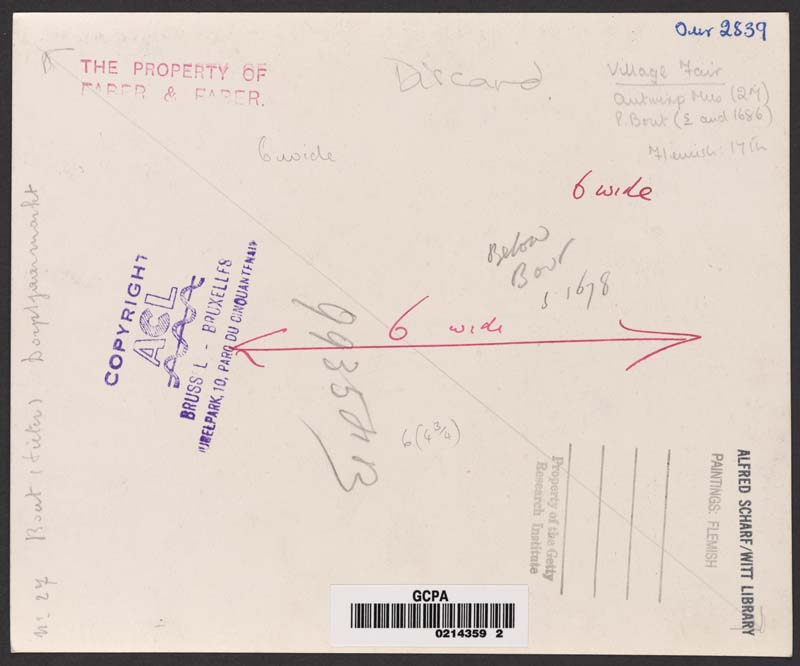 Our 2839
THE PROPERTY OF
FABER & FABER.
Discard
Village Fair
Antwerp Mus (27)
P. Bout (s and 1686)
Flemish 17th
6 wide
6 wide
Below
Bout
s 1678
COPYRIGHT
ACL
BRUSSEL - BRUXELLES
JUBELPARK, 10, PARC DU CINQUANTENAIRE
6 wide
99350B
6 (4 3/4)
Property of the Getty
Research Institute
ALFRED SCHARF/WITT LIBRARY
PAINTINGS: FLEMISH
nr 27 Bout (Pieter) Dorpsjaarmarkt
GCPA
0214359 2